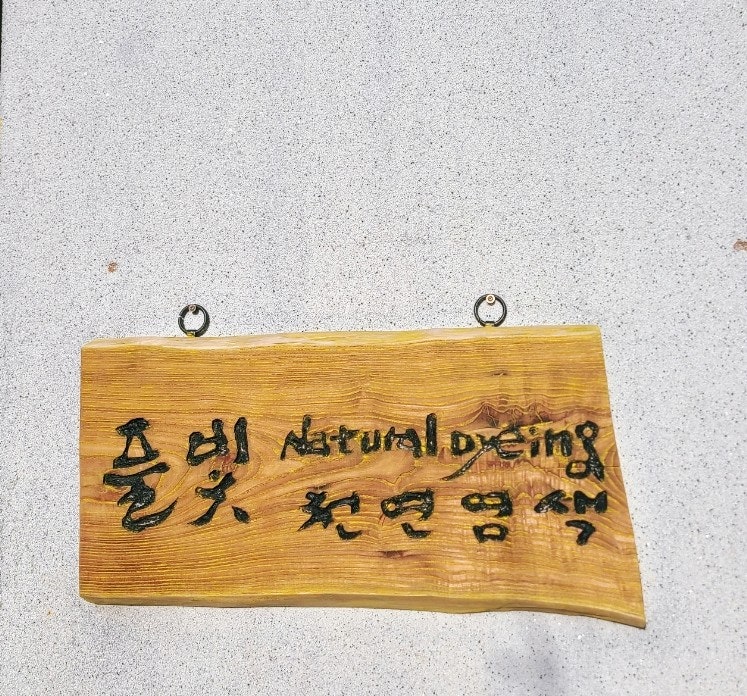 풀빛
Natural Dyeing
천연염색